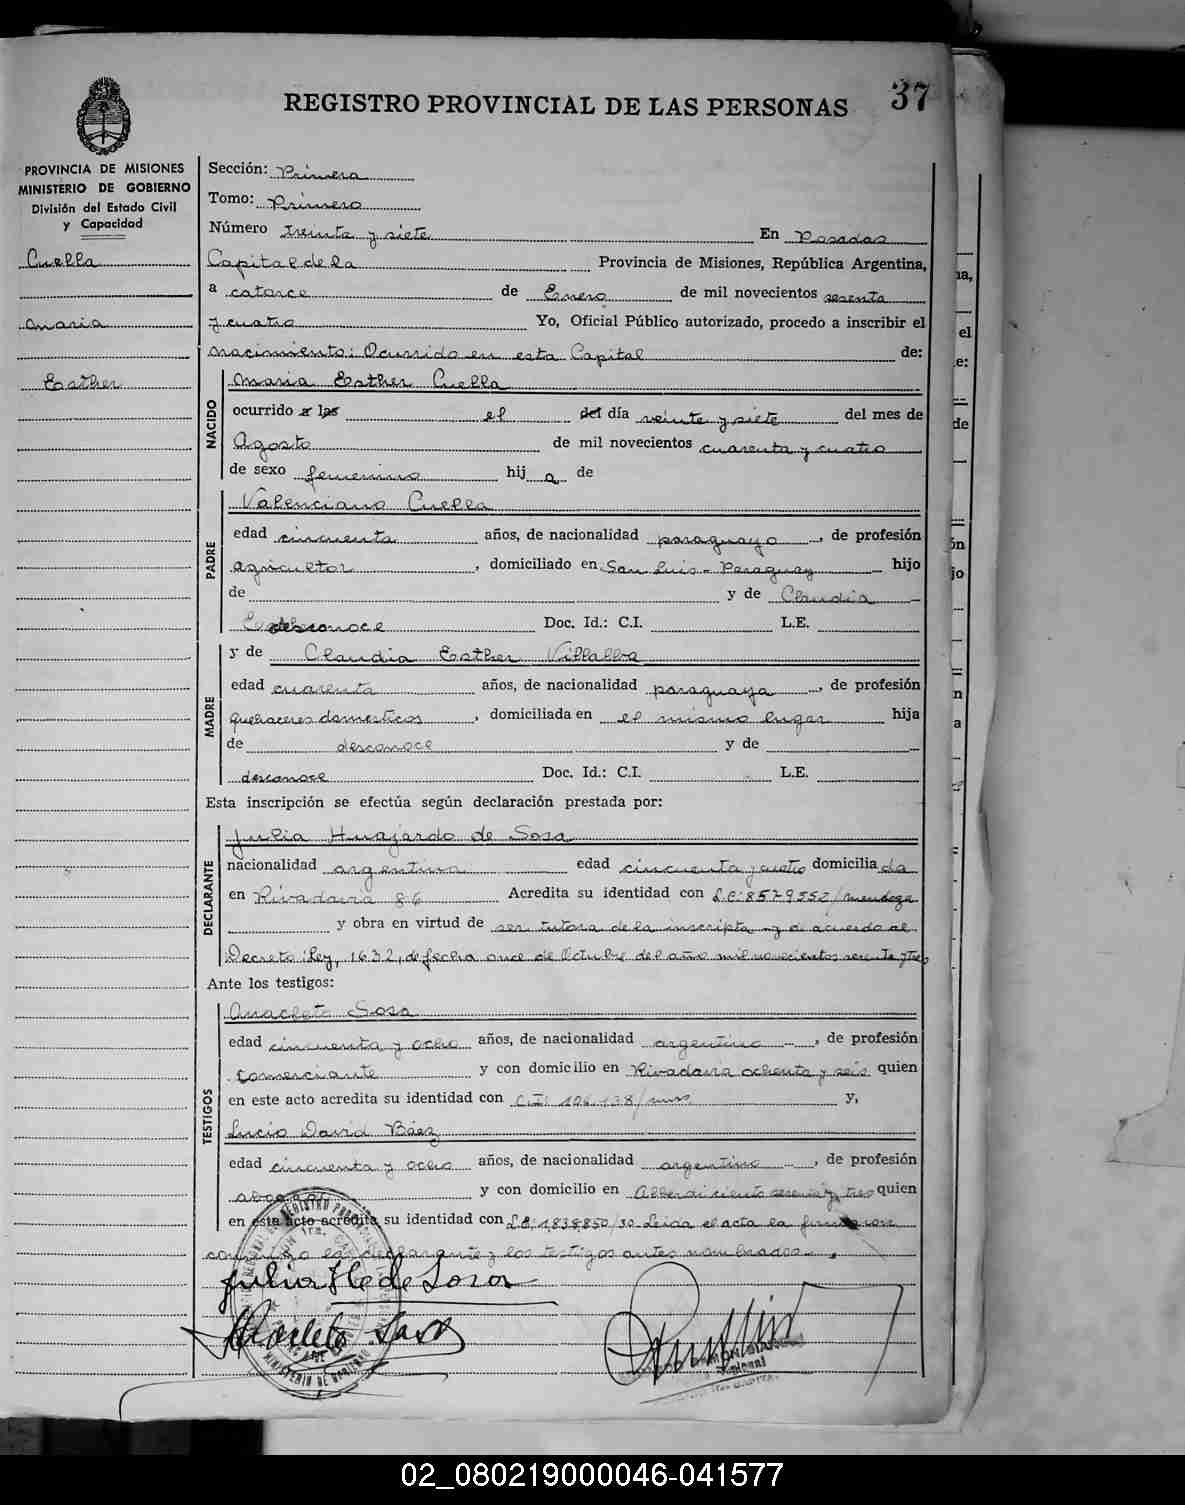 REGISTRO PROVINCIAL DE LAS PERSONAS
37
PROVINCIA DE MISIONES
MINISTERIO DE GOBIERNO
División del Estado Civil
y Capacidad
Cuella
Maria
Esther
Sección: Primera
Tomo: Primero
Número Treinta y siete En Posadas
Capital de la Provincia de Misiones, República Argentina,
a catorce de Enero de mil novecientos sesenta
y cuatro Yo, Oficial Público autorizado, procedo a inscribir el
nacimiento: Ocurrido en esta Capital de:
NACIDO
Maria Esther Cuella
ocurrido a las el del día veinte y siete del mes de
Agosto de mil novecientos cuarenta y cuatro
de sexo femenino hij a de
PADRE
Valenciano Cuella
edad cincuenta años, de nacionalidad paraguayo, de profesión
agricultor, domiciliado en San Luis - Paraguay hijo
de y de Claudia
desconoce Doc. Id.: C.I. L.E.
MADRE
y de Claudia Esther Villalba
edad cuarenta años, de nacionalidad paraguaya, de profesión
quehaceres domesticos, domiciliada en el mismo lugar hija
de desconoce y de
desconoce Doc. Id.: C.I. L.E.
Esta inscripción se efectúa según declaración prestada por:
DECLARANTE
Julia Huajardo de Sosa
nacionalidad argentina edad cincuenta y cuatro domicilia da
en Rivadavia 86 Acredita su identidad con L.C: 8579552/mendoza
y obra en virtud de ser tutora de la inscripta y de acuerdo al
Decreto Ley, 1632, de fecha once de Octubre del año mil novecientos sesenta y tres
Ante los testigos:
TESTIGOS
Anacleto Sosa
edad cincuenta y ocho años, de nacionalidad argentino, de profesión
Comerciante y con domicilio en Rivadavia ochenta y seis quien
en este acto acredita su identidad con C.I: 106.138/mnes y,
Lucio David Báez
edad cincuenta y ocho años, de nacionalidad argentino, de profesión
y con domicilio en Alberdi ciento sesenta y tres quien
en este acto acredita su identidad con L.E: 1.838.850/30. Leida el acta la firmaron
conmigo la declarante y los testigos antes nombrados.
Julia H de Sosa
Anacleto Sosa
02_080219000046-041577